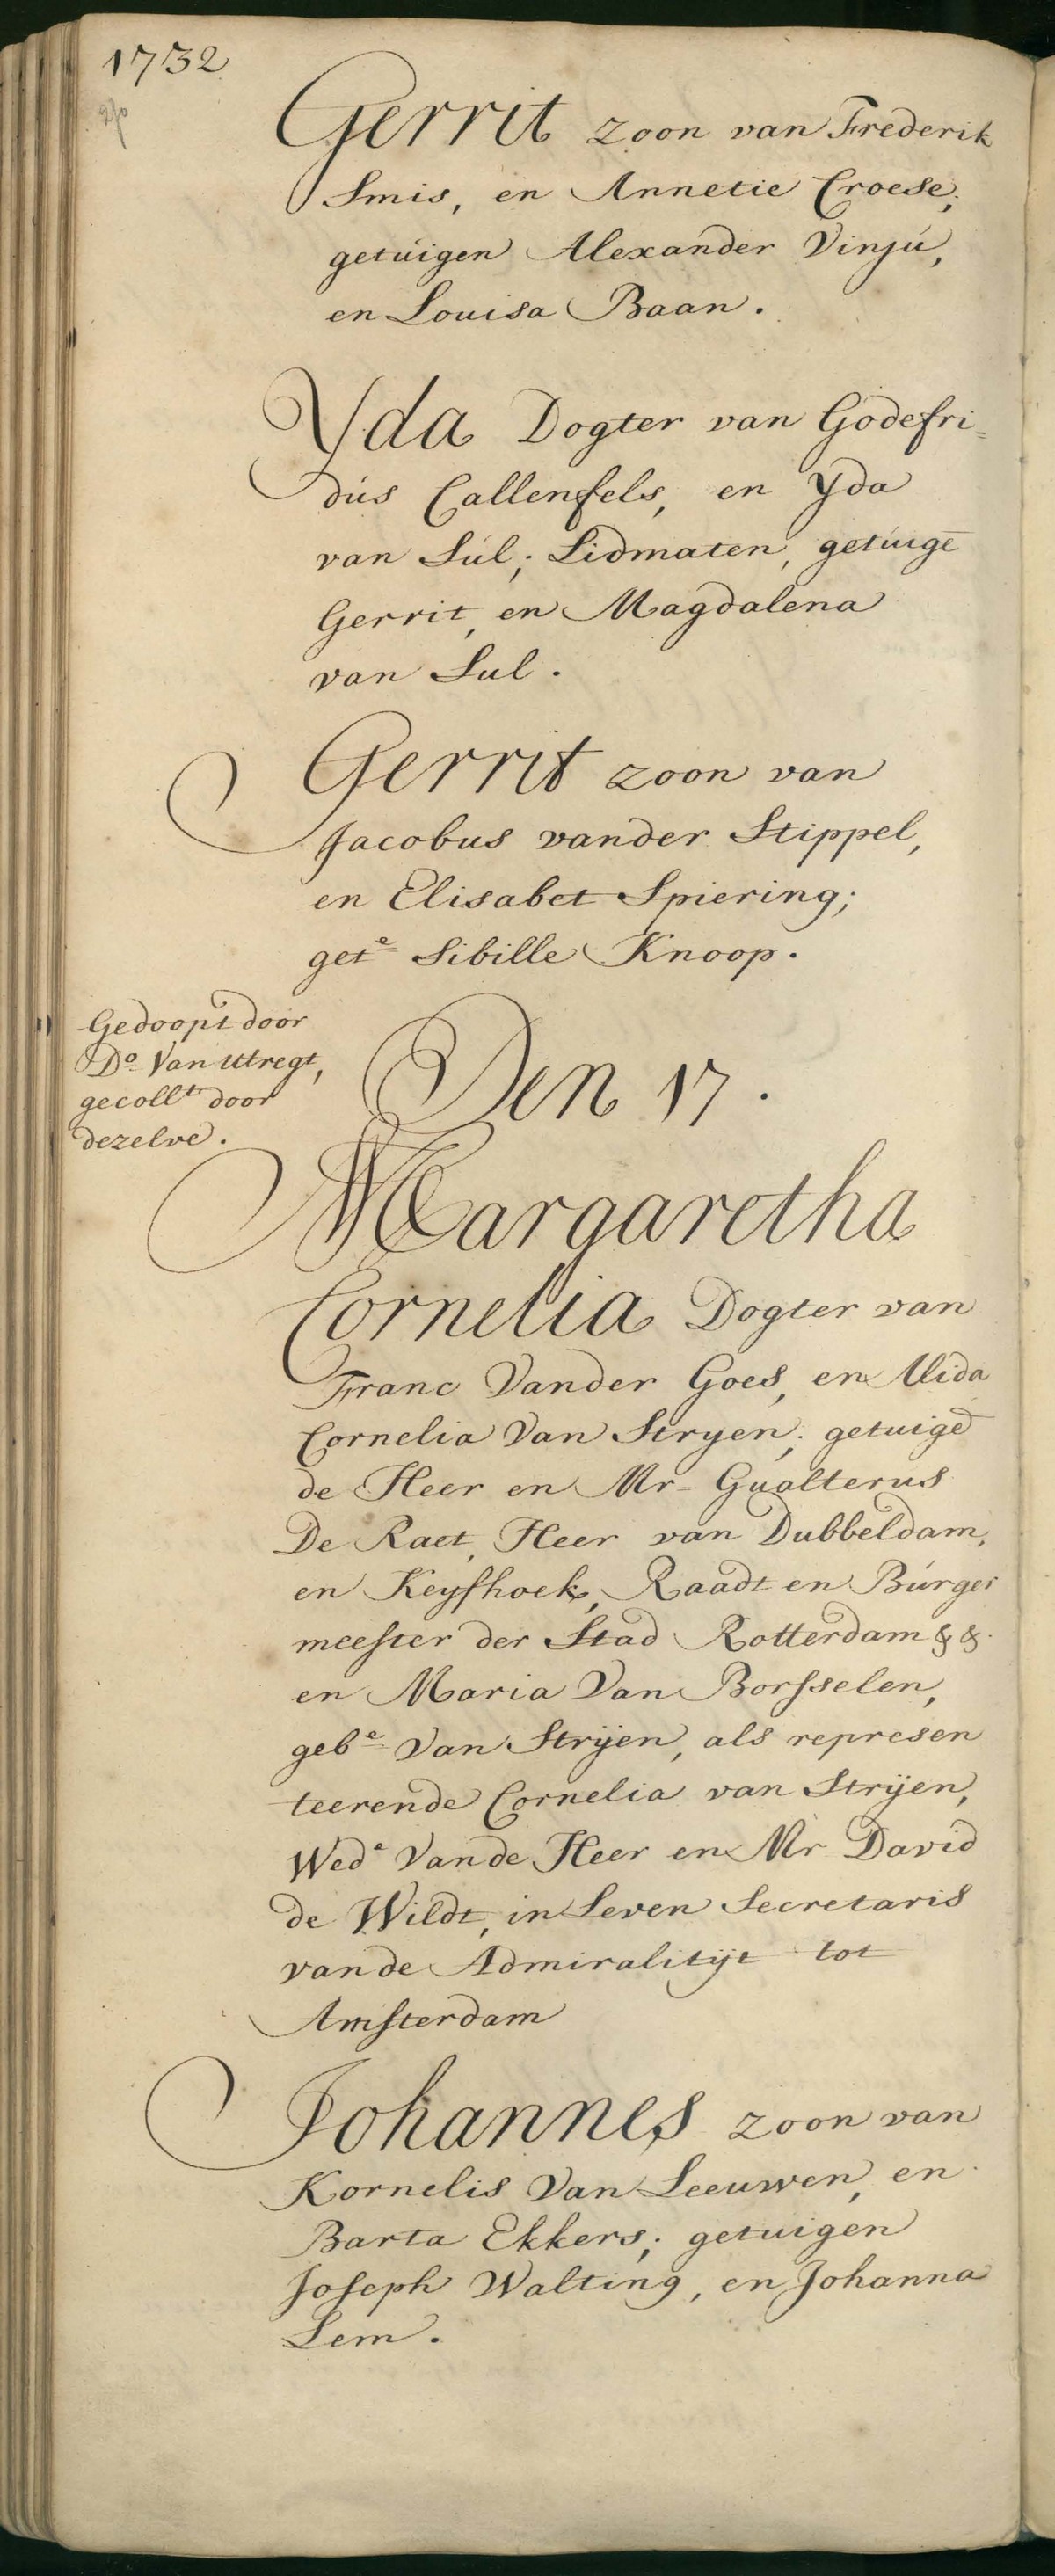 1732
Gerrit zoon van Frederik
Smis, en Annetie Croese;
getúigen Alexander Vinjú,
en Louisa Baan.
Yda Dogter van Godefri=
dús Callenfels, en Yda
van Súl; Lidmaten, getúigē
Gerrit, en Magdalena
van Sul.
Gerrit zoon van
Jacobus vander Stippel,
en Elisabet Spiering;
getᵉ Sibille Knoop.
Gedoopt door
Dº Van Utregt,
gecollᵗ door
dezelve.
Den 17.
Margaretha
Cornelia Dogter van
Franc Vander Goes, en Alida
Cornelia Van Stryen; getuigē
de Heer en Mr Gualterus
De Raet, Heer van Dubbeldam,
en Keyfhoek, Raadt en Búrger
meester der Stad Rotterdam & &.
en Maria Van Borsselen,
gebᵉ Van Strÿen, als represen
teerende Cornelia van Strÿen,
Wedᵉ Vande Heer en Mr David
de Wildt, in Leven Secretaris
vande Admiralitijt tot
Amsterdam
Johannes zoon van
Kornelis Van Leeuwen, en
Barta Ekkers; getuigen
Joseph Walting, en Johanna
Lem.